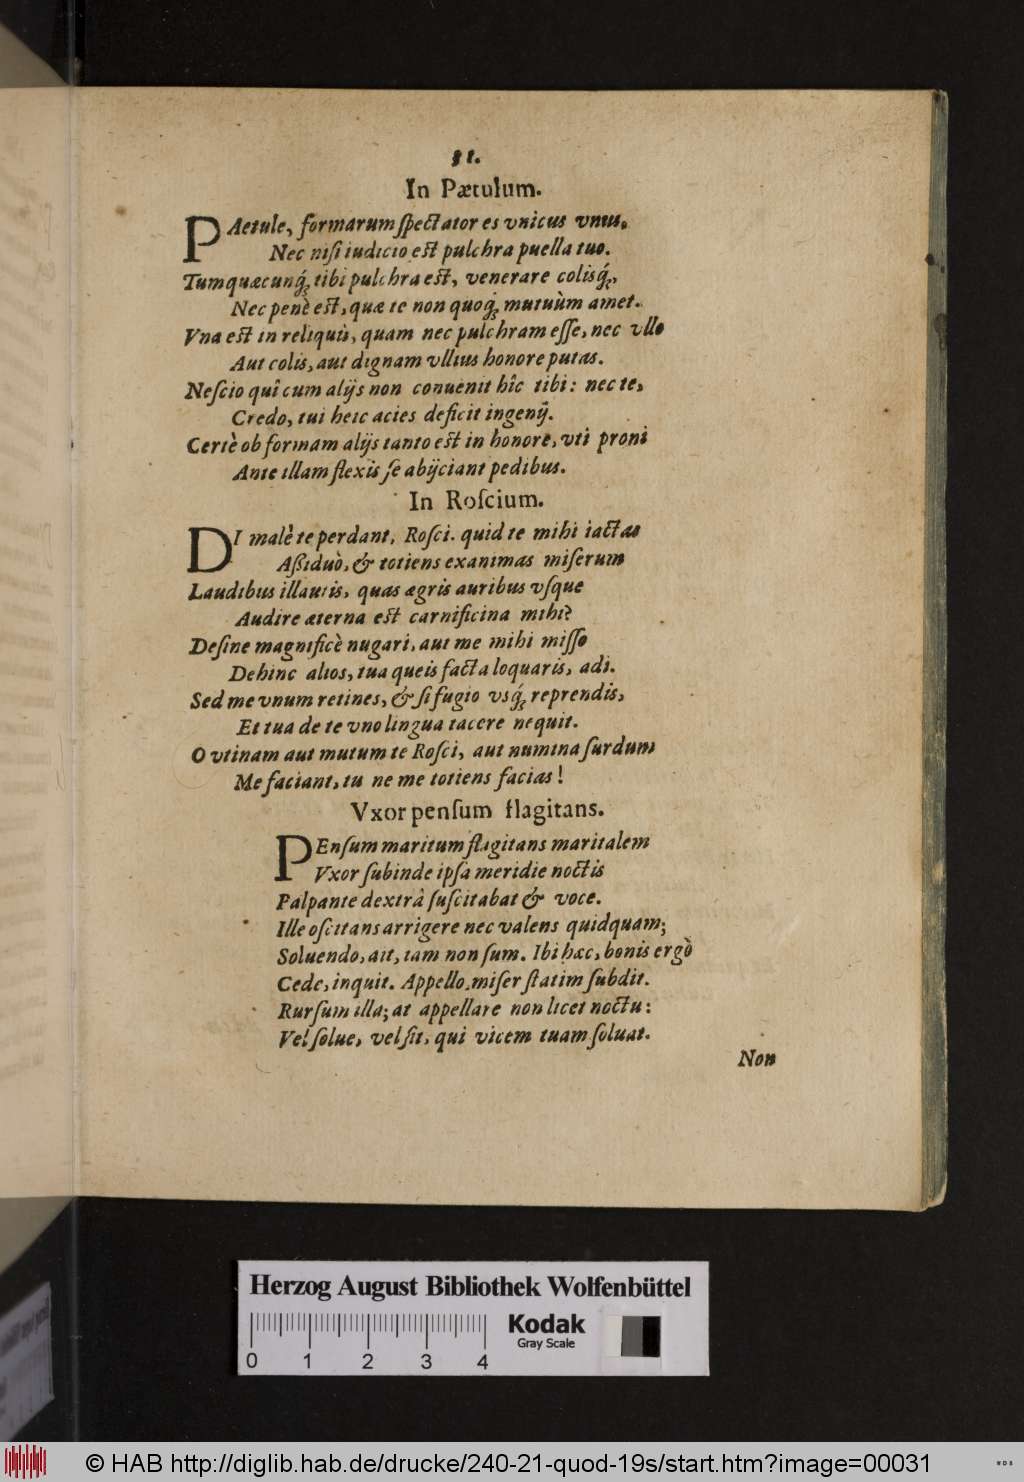 31.
In Pætulum.
PAetule, formarum ſpectator es vnicus vnus,
Nec niſi iudicio est pulchra puella tuo.
Tum quæcunq́; tibi pulchra est, venerare colisq́;,
Nec penè est, quæ te non quoq́; mutuùm amet.
Vna est in reliquis, quam nec pulchram eſſe, nec vllo
Aut colis, aut dignam vllius honore putas.
Neſcio quî cum alijs non conuenit hîc tibi: nec te,
Credo, tui heic acies deficit ingenij.
Certè ob formam alijs tanto est in honore, vti proni
Ante illam flexis ſe abijciant pedibus.
In Roſcium.
DI malè te perdant, Roſci. quid te mihi iactas
Aßiduò, & totiens exanimas miſerum
Laudibus illautis, quas ægris auribus vſque
Audire æterna est carnificina mihi?
Deſine magnificè nugari, aut me mihi miſſo
Dehinc alios, tua queis facta loquaris, adi.
Sed me vnum retines, & ſi fugio vsq́; reprendis,
Et tua de te vno lingua tacere nequit.
O vtinam aut mutum te Roſci, aut numina ſurdum
Me faciant, tu ne me totiens facias!
Vxor penſum flagitans.
PEnſum maritum flagitans maritalem
Vxor ſubinde ipſa meridie noctis
Palpante dextrâ ſuſcitabat & voce.
Ille oſcitans arrigere nec valens quidquam;
Soluendo, ait, iam non ſum. Ibi hæc, bonis ergò
Cede, inquit. Appello, miſer ſtatim ſubdit.
Rurſum illa; at appellare non licet noctu:
Vel ſolue, vel ſit, qui vicem tuam ſoluat.
Non
Herzog August Bibliothek Wolfenbüttel
Kodak
Gray Scale
0 1 2 3 4
© HAB http://diglib.hab.de/drucke/240-21-quod-19s/start.htm?image=00031